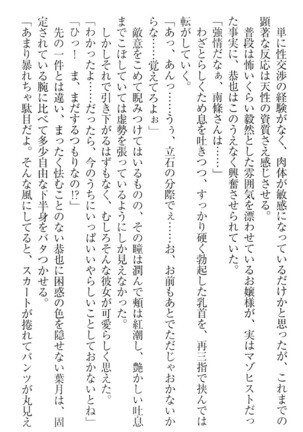 単に性交渉の経験がなく、肉体が敏感になっているだけかと思ったが、これまでの
顕著な反応は天性の資質さえ感じさせる。
普段は怖いくらい毅然とした雰囲気を漂わせているお嬢様が、実はマゾヒストだっ
た事実に、恭也はこのうえなく興奮させられていた。
「強情だなぁ、南條さんは……」
わざとらしくため息を吐きつつ、すっかり硬く勃起した乳首を、再三指で挟んでは
転がしていく。
「あっ、あんっ……うぅ、立石の分際でぇ……お、お前もあとでただじゃおかないか
らな……覚えてろよぉ」
敵意をこめて睨みつけてはいるものの、その瞳は潤んで頬は紅潮し、艶かしい吐息
までこぼしていては虚勢を張っているようにしか見えなかった。
しかしそれで引き下がるはずもなく、むしろそんな彼女が可愛らしく思えた。
「わかったよ……だったら、今のうちにいっぱいいやらしいことしておかないとね」
「ひっ！　ま、まだするつもりなの!?」
先の一件とは違い、まったく怯むことのない恭也に困惑の色を隠せない葉月は、固
定されている腕に比べて多少自由な下半身をバタつかせる。
「あまり暴れちゃ駄目だよ。そんな風にしてると、スカートが捲れてパンツが丸見え